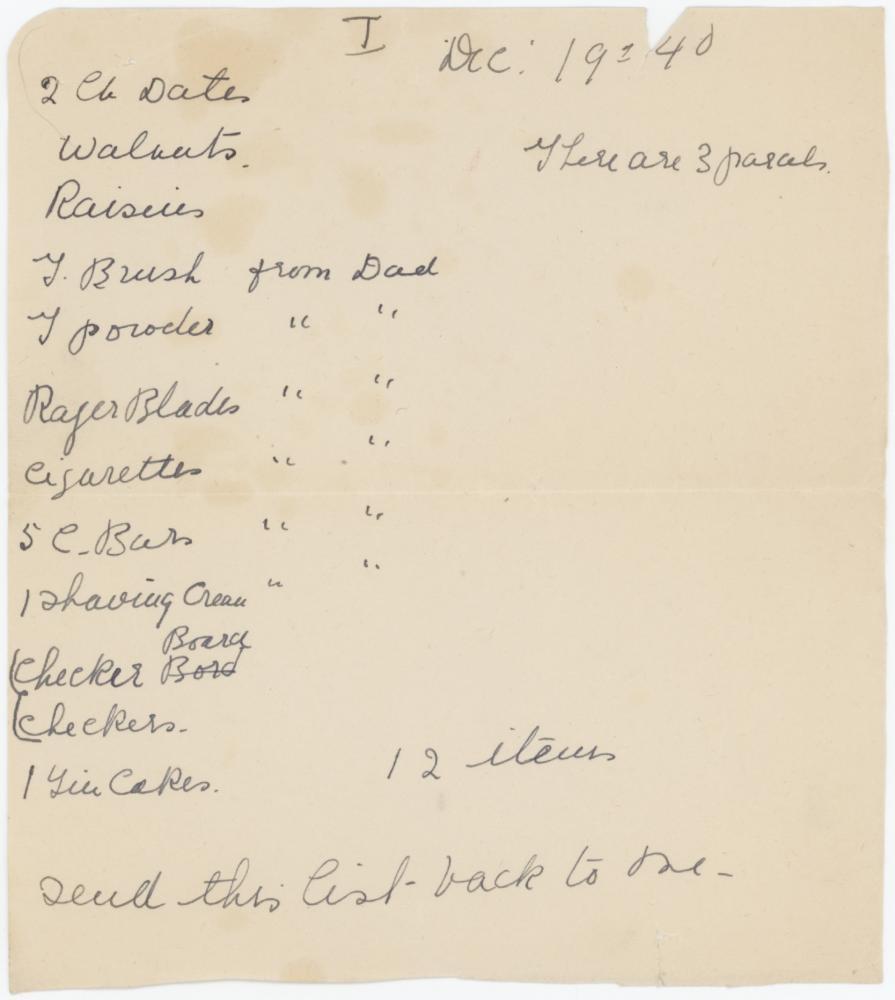 I
Dec: 19 = 40
2 lb Dates
There are 3 parcels.
Walnuts.
Raisins
T. Brush from Dad
T powder " "
Razer Blades " "
Cigarettes " "
5 C. Bars " "
1 shaving Cream " "
Board
(Checker Bord
(Checkers.
12 items
1 Tin Cakes.
send this list back to me -